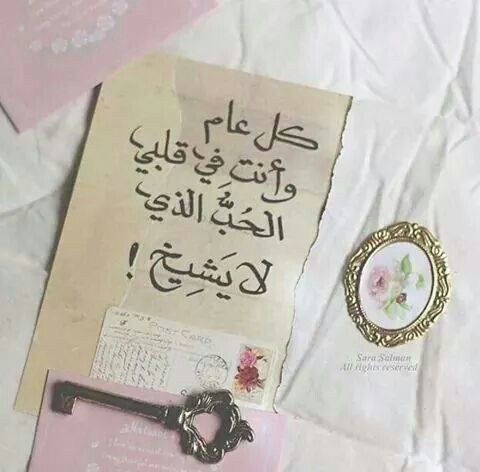 كل عام
وأنت في قلبي
الحُبَّ الذي
لا يَشِيخ !
POST CARD
Sara Salman
All rights reserved